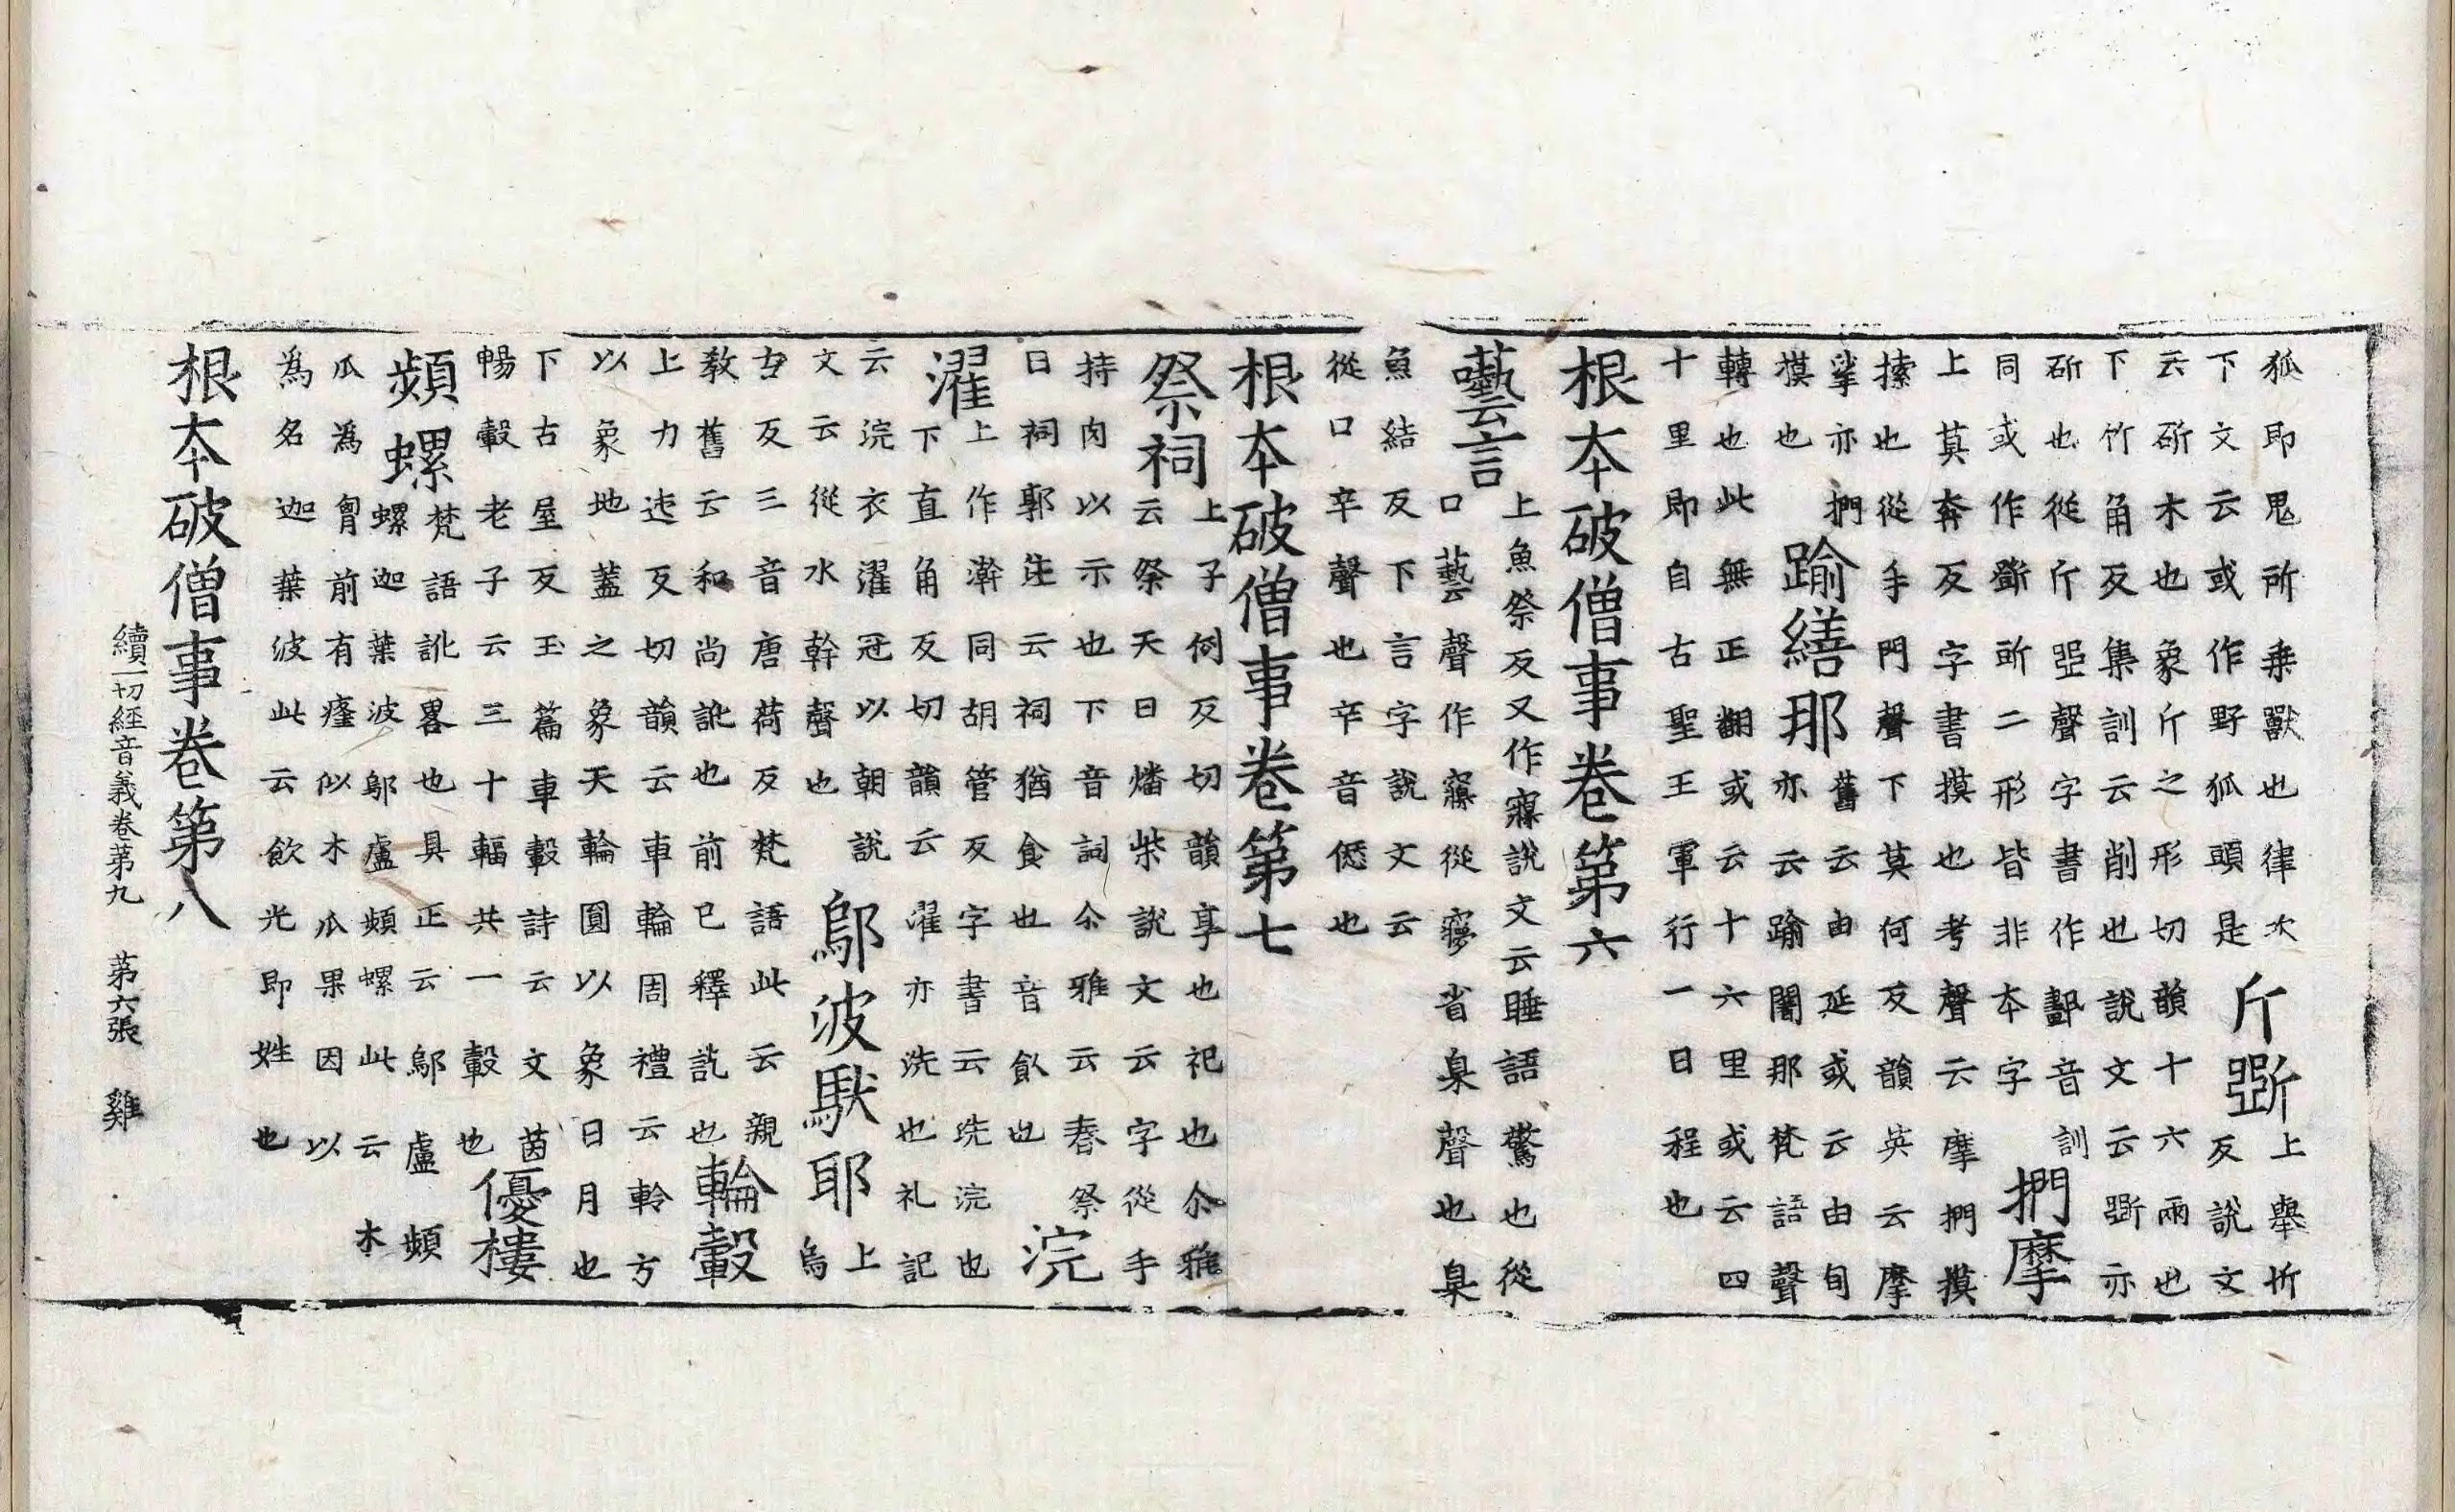 狐即鬼所乗獸也律次
下文云或作野狐頭是
斤斲
上舉忻
反說文
云斫木也象斤之形切韻十六兩也
下竹角反集訓云削也說文云斲亦
斫也從斤𠁁聲字書作䣱音訓
同或作斵㪽二形皆非本字
捫摩
上莫奔反字書摸也考聲云摩捫摸
㨞也從手門聲下莫何反韻英云摩
挲亦捫
摸也
踰繕那
舊云由延或云由旬
亦云踰闍那梵語聲
轉也此無正翻或云十六里或云四
十里即自古聖王軍行一日程也
根本破僧事卷第六
囈言
上魚祭反又作寱說文云睡語驚也從
口藝聲作寱從㝱省臬聲也臬
魚結反下言字說文云
從口䇂聲也䇂音愆也
根本破僧事卷第七
祭祠
上子例反切韻享也祀也尒雅
云祭天曰燔柴說文云字從手
持肉以示也下音詞尒雅云春祭
曰祠郭注云祠猶食也音飤也
浣
濯
上作澣同胡管反字書云洗浣也
下直角反切韻云濯亦洗也礼記
云浣衣濯冠以朝說
文云從水幹聲也
鄔波馱耶
上
烏
古反三音唐荷反梵語此云親
教舊云和尚訛也前已釋訖也
輪轂
上力迍反切韻云車輪周禮云軨方
以象地蓋之象天輪圓以象日月也
下古屋反玉篇車轂詩云文茵
暢轂老子云三十輻共一轂也
優樓
頻螺
梵語訛畧也具正云鄔盧頻
螺迦葉波鄔盧頻螺此云木
瓜爲胷前有癦似木瓜果因以
爲名迦葉波此云飲光即姓也
根本破僧事卷第八
續一切經音義卷第九 第六張 雞